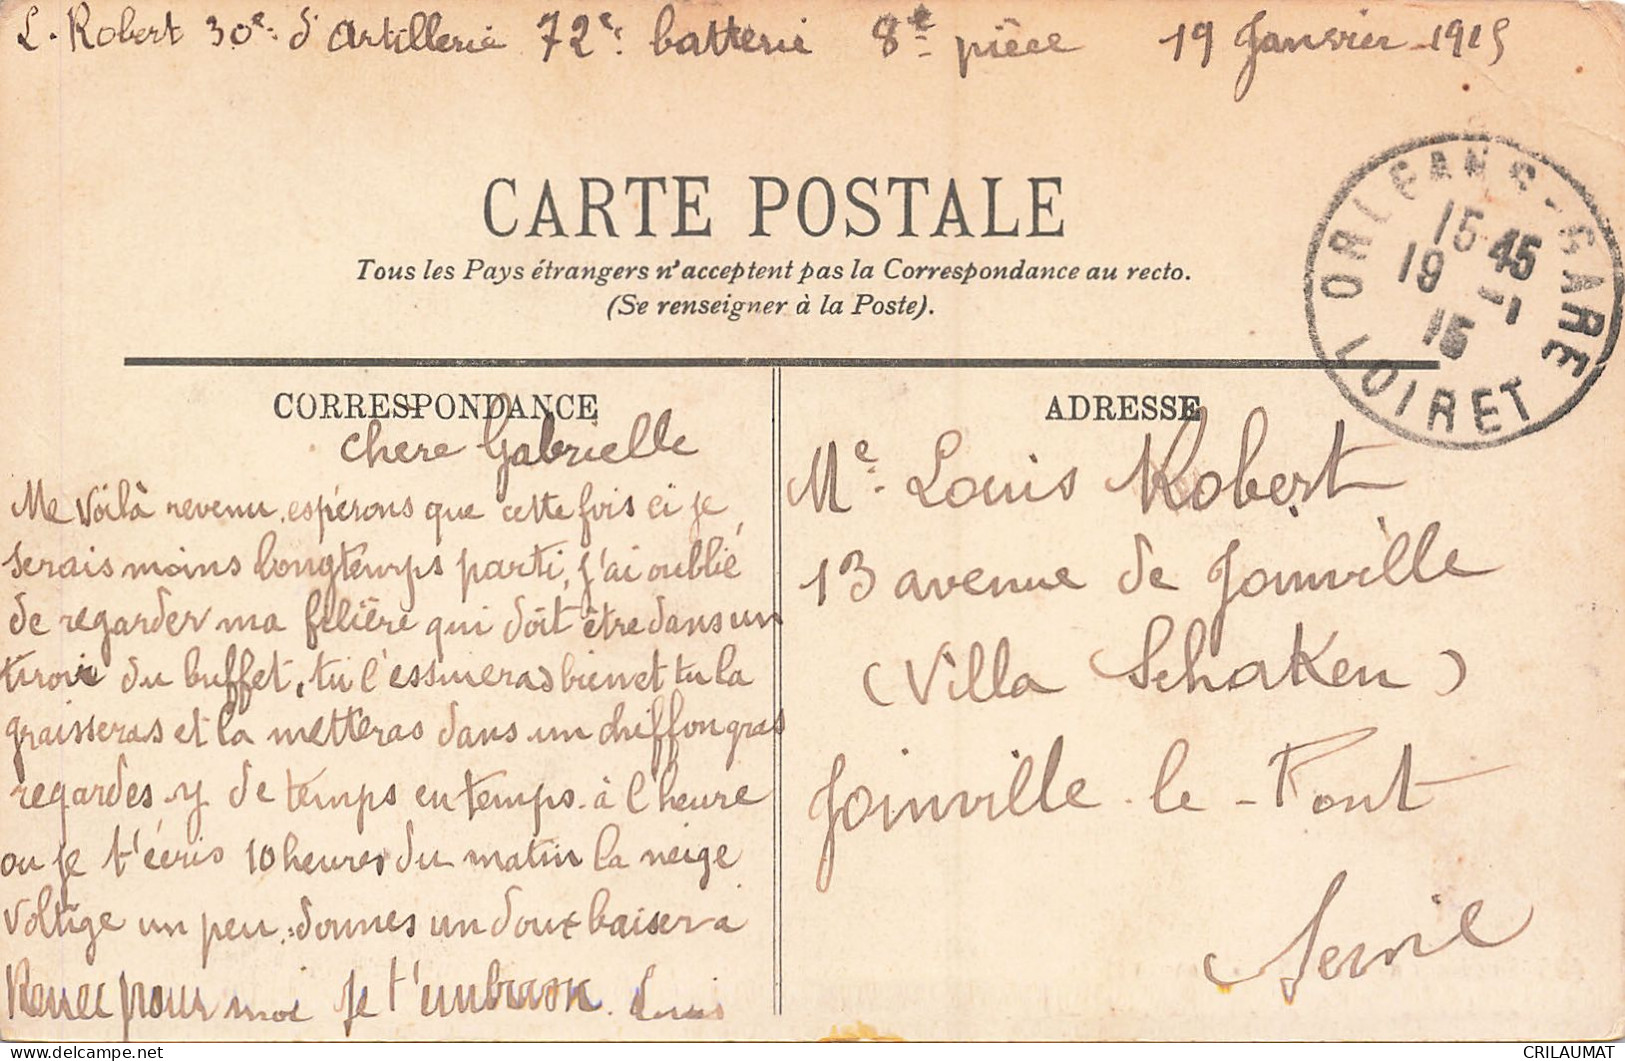 L. Robert 30e. d'Artillerie 72e. batterie 8e pièce 19 Janvier 1915
CARTE POSTALE
Tous les Pays étrangers n'acceptent pas la Correspondance au recto.
(Se renseigner à la Poste).
ORLEANS-GARE
15 45
19 -1
15
LOIRET
CORRESPONDANCE
chere Gabrielle
Me voilà revenu espérons que cette fois ci je
serais moins longtemps parti, j'ai oublié
de regarder ma filière qui doit être dans un
tiroir du buffet, tu l'essuieras bien et tu la
graisseras et la metteras dans un chiffon gras
regardes y de temps en temps. à l'heure
ou je t'écris 10 heures du matin la neige
voltige un peu. donnes un doux baiser a
Renée pour moi je t'embrasse. Louis
ADRESSE
Me. Louis Robert
13 avenue de Joinville
(Villa Schaken)
Joinville-le-Pont
Seine
CRILAUMAT